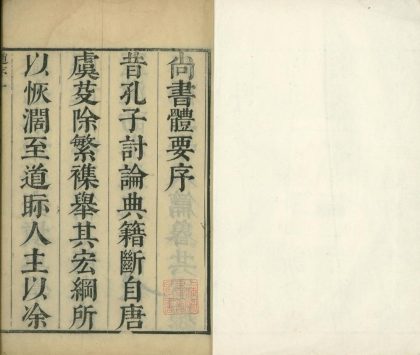 尚書體要序
昔孔子討論典籍斷自唐
虞芟除繁襍舉其宏綱所
以恢濶至道眎人主以凃